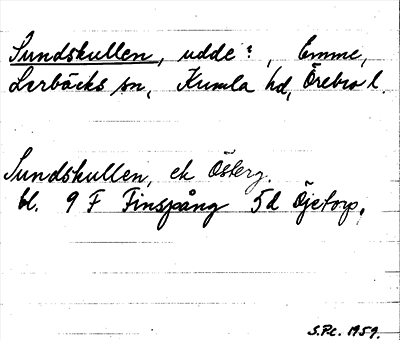 Sundskullen, udde?, Emme,
Lerbäcks sn, Kumla hd, Örebro l.
Sundskullen, ek Österg.
bl. 9 F Finspång 5d Öjetorp.
S.Pc. 1959.